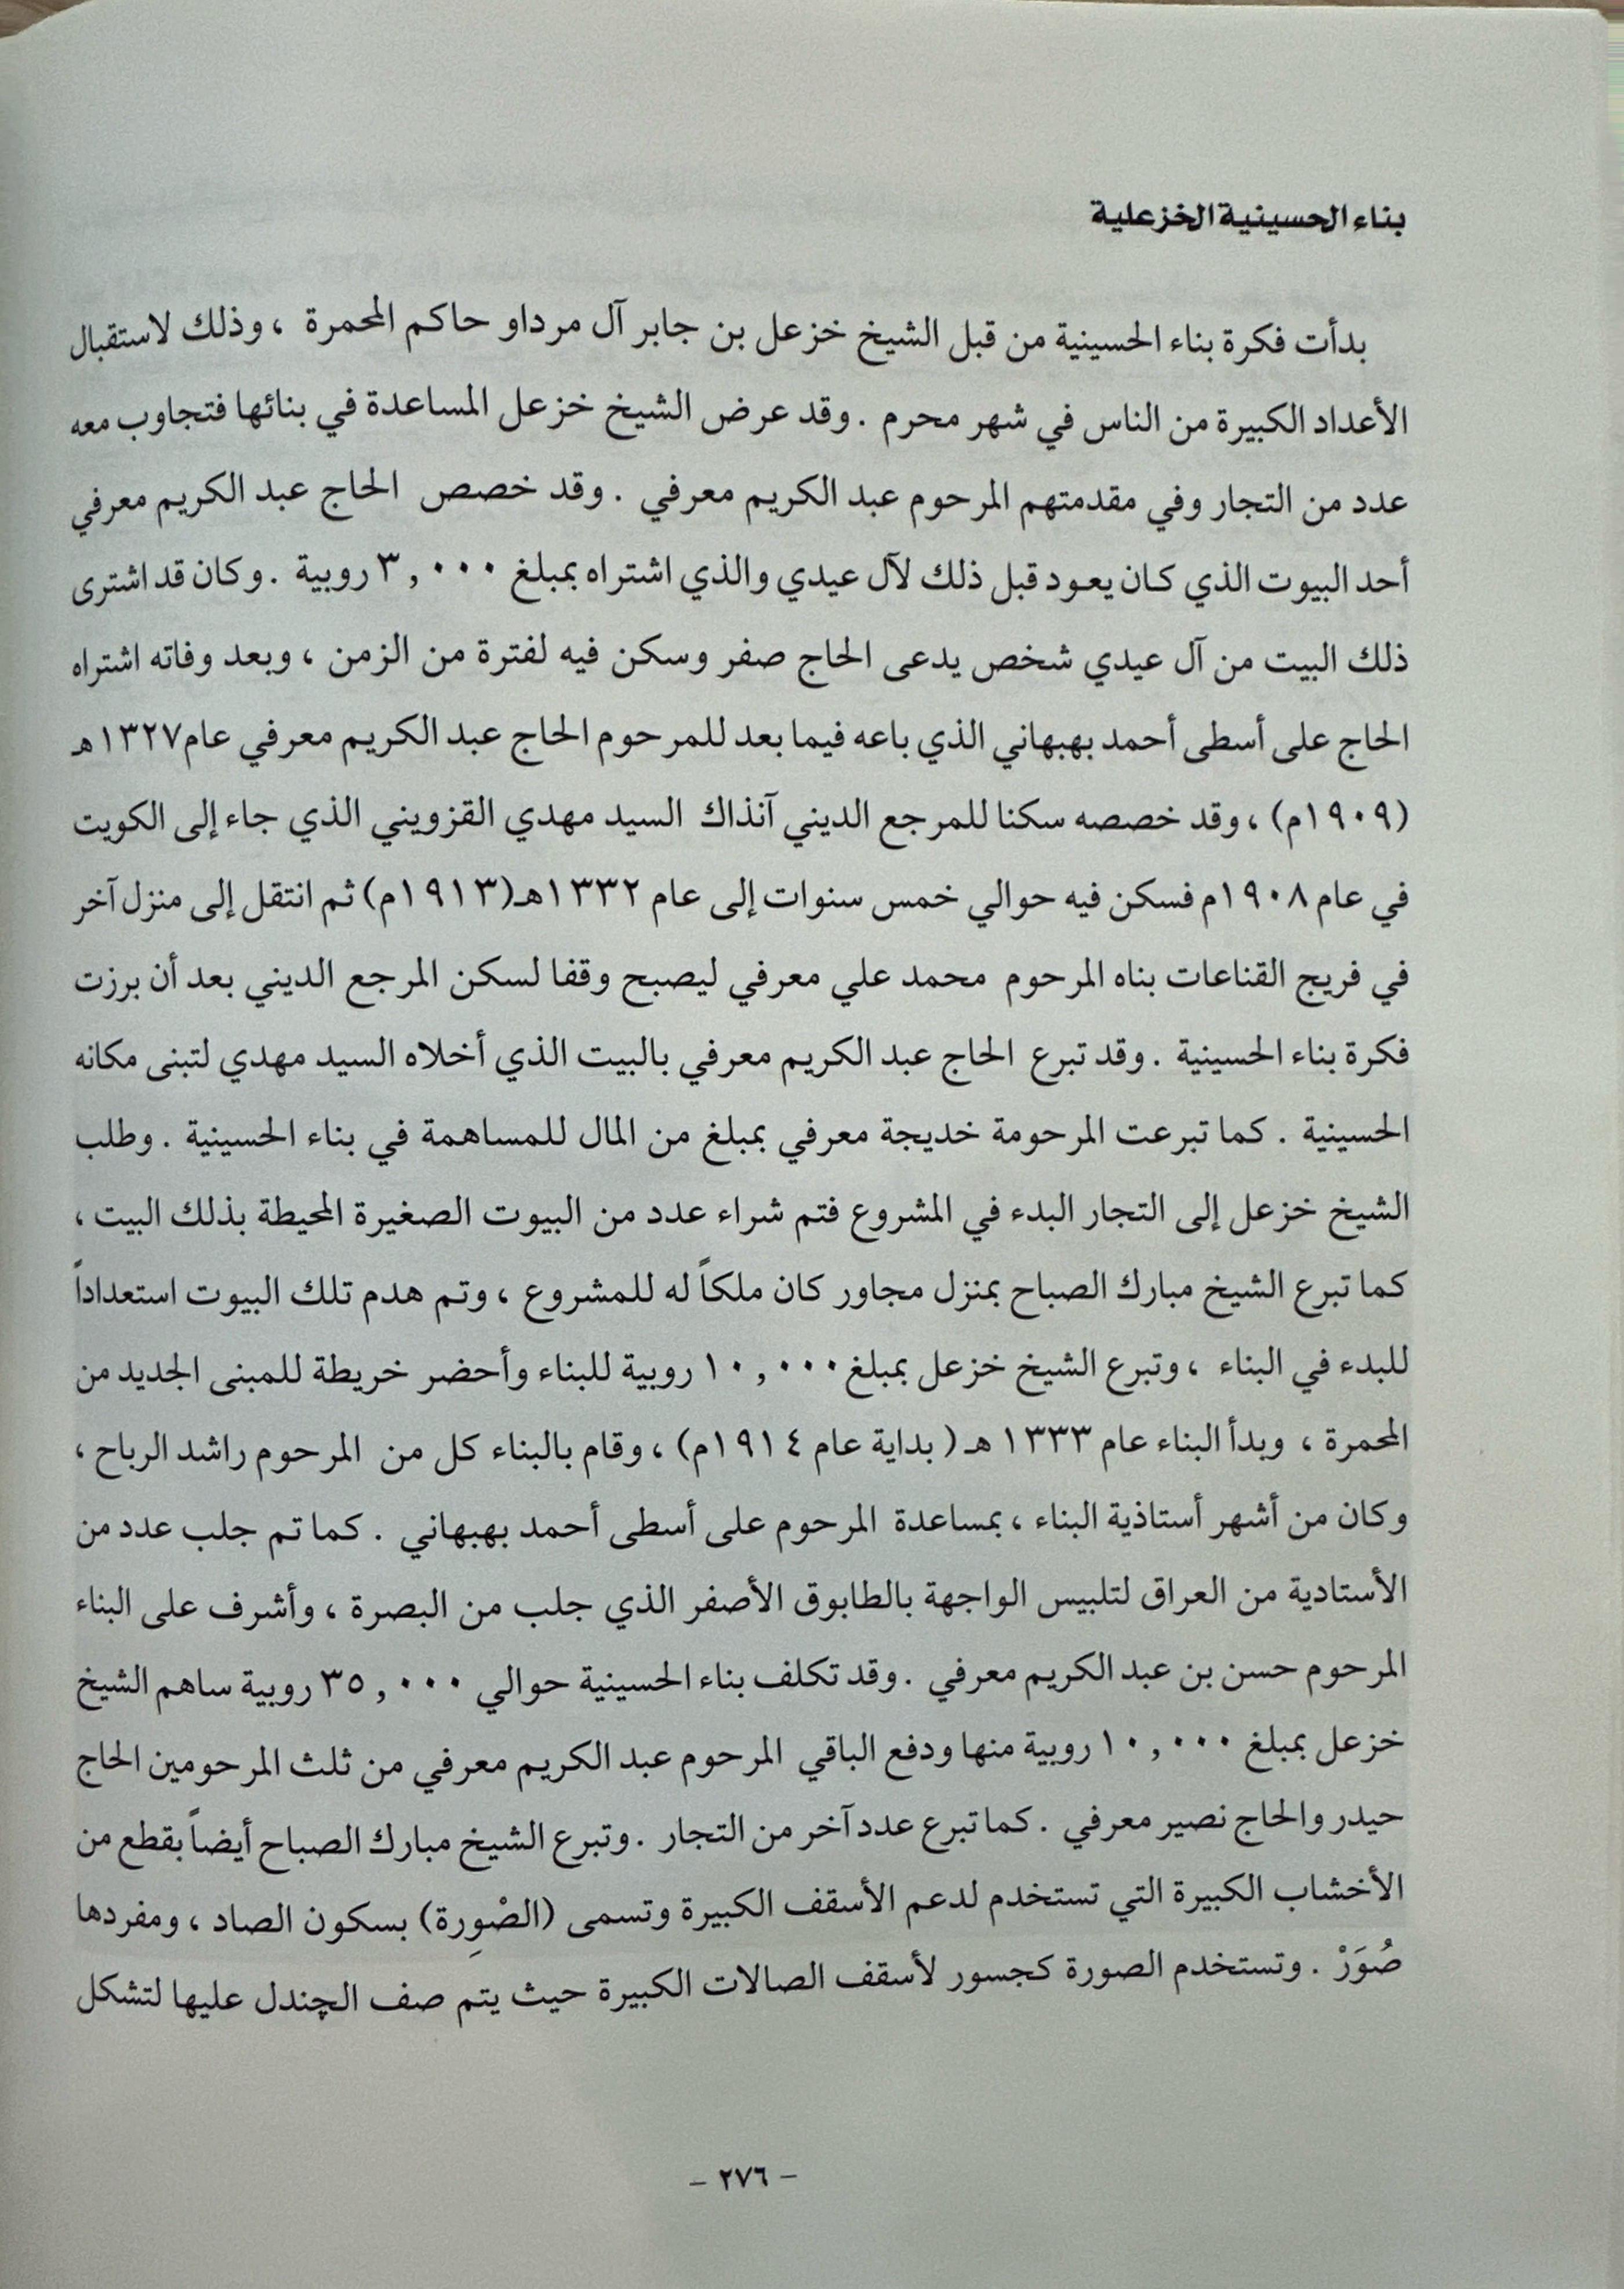 بناء الحسينية الخزعلية
بدأت فكرة بناء الحسينية من قبل الشيخ خزعل بن جابر آل مرداو حاكم المحمرة ، وذلك لاستقبال
الأعداد الكبيرة من الناس في شهر محرم . وقد عرض الشيخ خزعل المساعدة في بنائها فتجاوب معه
عدد من التجار وفي مقدمتهم المرحوم عبد الكريم معرفي . وقد خصص الحاج عبد الكريم معرفي
أحد البيوت الذي كان يعود قبل ذلك لآل عيدي والذي اشتراه بمبلغ ٣,٠٠٠ روبية . وكان قد اشترى
ذلك البيت من آل عيدي شخص يدعى الحاج صفر وسكن فيه لفترة من الزمن ، وبعد وفاته اشتراه
الحاج على أسطى أحمد بهبهاني الذي باعه فيما بعد للمرحوم الحاج عبد الكريم معرفي عام ١٣٢٧هـ
(١٩٠٩م) ، وقد خصصه سكنا للمرجع الديني آنذاك السيد مهدي القزويني الذي جاء إلى الكويت
في عام ١٩٠٨م فسكن فيه حوالي خمس سنوات إلى عام ١٣٣٢هـ(١٩١٣م) ثم انتقل إلى منزل آخر
في فريج القناعات بناه المرحوم محمد علي معرفي ليصبح وقفا لسكن المرجع الديني بعد أن برزت
فكرة بناء الحسينية . وقد تبرع الحاج عبد الكريم معرفي بالبيت الذي أخلاه السيد مهدي لتبنى مكانه
الحسينية . كما تبرعت المرحومة خديجة معرفي بمبلغ من المال للمساهمة في بناء الحسينية . وطلب
الشيخ خزعل إلى التجار البدء في المشروع فتم شراء عدد من البيوت الصغيرة المحيطة بذلك البيت ،
كما تبرع الشيخ مبارك الصباح بمنزل مجاور كان ملكاً له للمشروع ، وتم هدم تلك البيوت استعداداً
للبدء في البناء ، وتبرع الشيخ خزعل بمبلغ ١٠,٠٠٠ روبية للبناء وأحضر خريطة للمبنى الجديد من
المحمرة ، وبدأ البناء عام ١٣٣٣ هـ ( بداية عام ١٩١٤م) ، وقام بالبناء كل من المرحوم راشد الرباح ،
وكان من أشهر أستاذية البناء ، بمساعدة المرحوم على أسطى أحمد بهبهاني . كما تم جلب عدد من
الأستادية من العراق لتلبيس الواجهة بالطابوق الأصفر الذي جلب من البصرة ، وأشرف على البناء
المرحوم حسن بن عبد الكريم معرفي . وقد تكلف بناء الحسينية حوالي ٣٥,٠٠٠ روبية ساهم الشيخ
خزعل بمبلغ ١٠,٠٠٠ روبية منها ودفع الباقي المرحوم عبد الكريم معرفي من ثلث المرحومين الحاج
حيدر والحاج نصير معرفي . كما تبرع عدد آخر من التجار . وتبرع الشيخ مبارك الصباح أيضاً بقطع من
الأخشاب الكبيرة التي تستخدم لدعم الأسقف الكبيرة وتسمى (الصْوِرة) بسكون الصاد ، ومفردها
صُوَرْ . وتستخدم الصورة كجسور لأسقف الصالات الكبيرة حيث يتم صف الچندل عليها لتشكل
- ٢٧٦ -